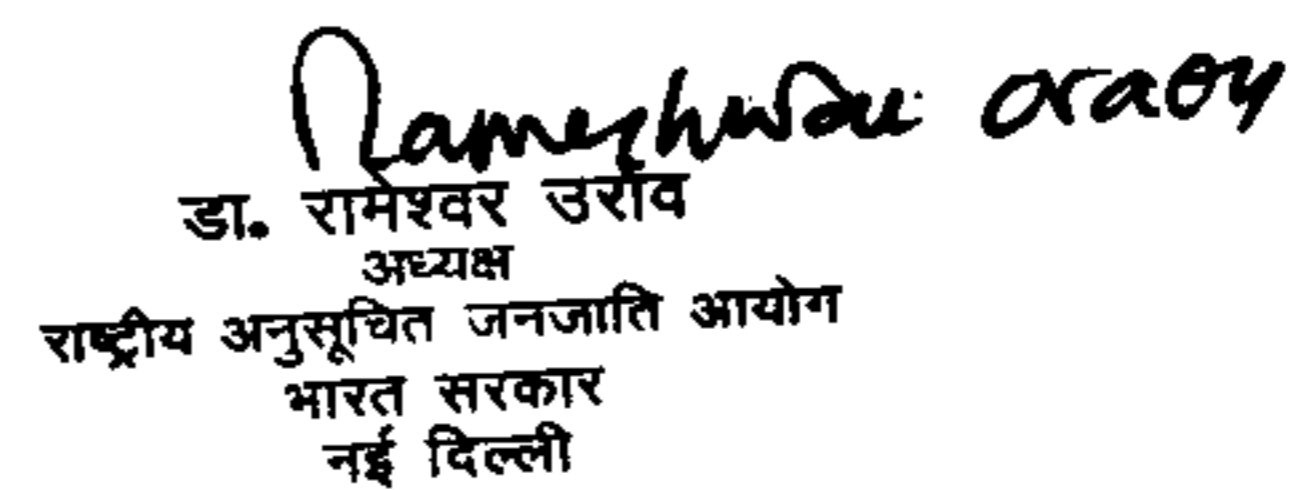 Rameshwar Oraon
डा. रामेश्वर उराँव
अध्यक्ष
राष्ट्रीय अनुसूचित जनजाति आयोग
भारत सरकार
नई दिल्ली